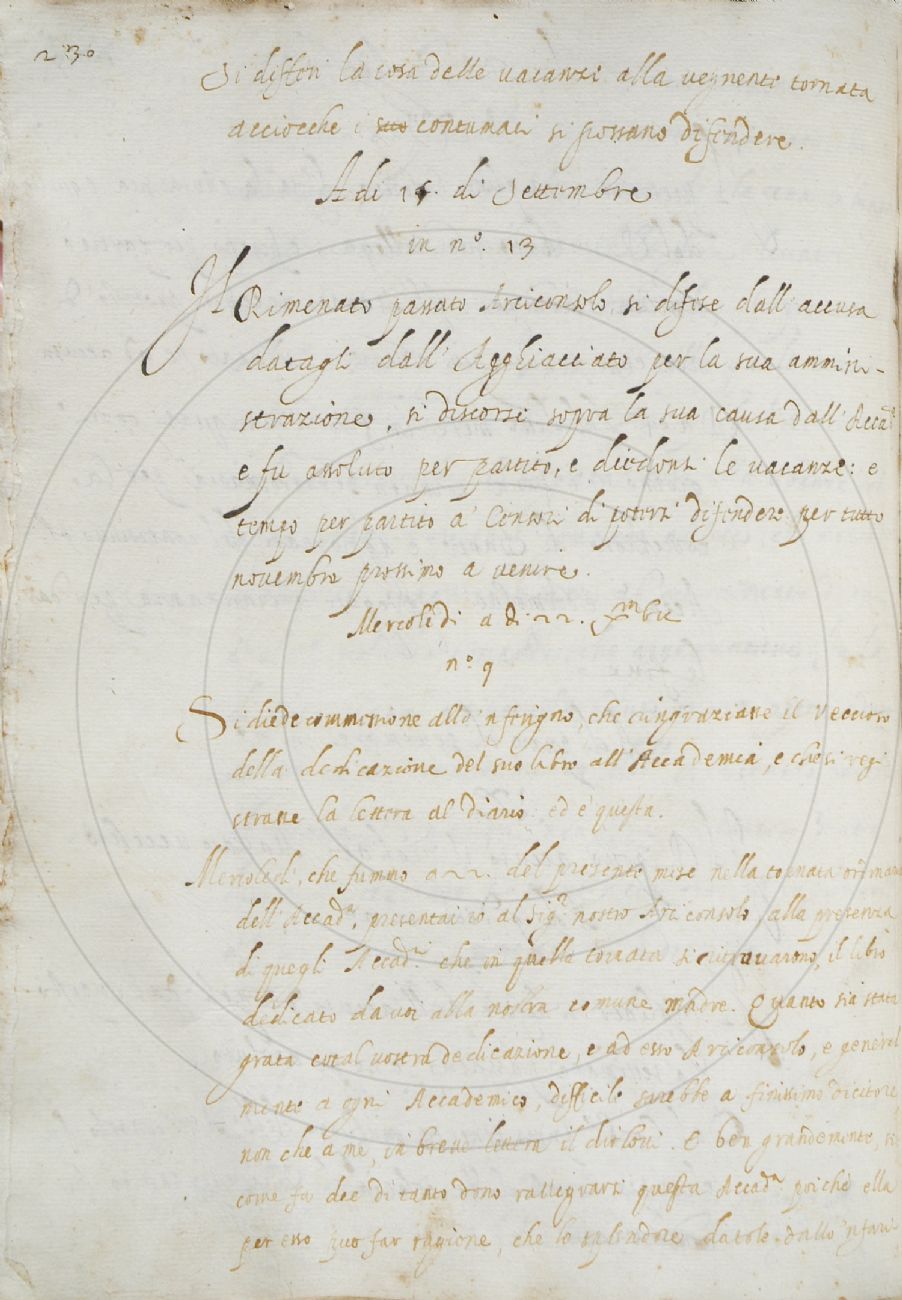 230
Si differì la cosa delle vacanze alla vegnente tornata
acciocche i suo contumaci si possano difendere.
A di 15. di Settembre
in n.º 13
Il Rimenato passato Arciconsolo si difese dall'accusa
datagli dall'Agghiacciato per la sua ammini-
strazione, si discorse sopra la sua causa dall'Accad.ª
e fu assoluto per partito, e diedonsi le vacanze: e
tempo per partito a' Censori di potersi difendere per tutto
novembre prossimo a venire.
Mercoledi a di 22.
n.º 9
Si diede commissione allo 'nferigno, che ringraziasse il
della dedicazione del suo libro all'Accademia, e che si regi
strasse la lettera al diario ed è questa.
Mercoledi, che fummo a 22. del presente mese nella tornata ordinaria
dell'Accad.ª presentai io al Sig.r nostro Arciconsolo, alla presenzia
di quegli Accad.i che in quella tornata si ritrovarono, il libro
dedicato da voi alla nostra comune madre. Quanto sia stata
grata cotal vostra dedicazione, e ad esso Arciconsolo, e general
mente a ogni Accademico, difficile sarebbe a finissimo dicitore
non che a me, in breve lettera il dirlovi. E ben grandemente, si
come fa dee di tanto dono rallegrarsi questa Accad.ª poiche ella
per esso può far ragione, che lo splendore datole dallo 'nfari-